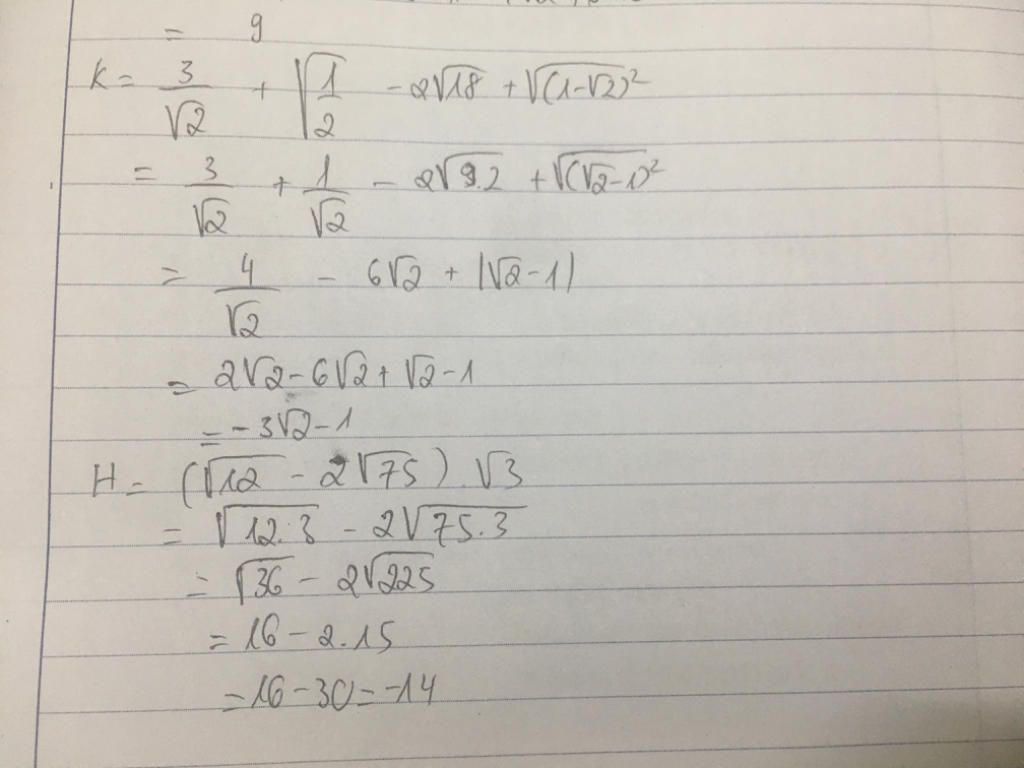 = 9
K = 3/√2 + √(1/2) - 2√18 + √(1-√2)²
= 3/√2 + 1/√2 - 2√9.2 + √(√2-1)²
= 4/√2 - 6√2 + |√2-1|
= 2√2 - 6√2 + √2 - 1
= -3√2 - 1
H = (√12 - 2√75).√3
= √12.3 - 2√75.3
= √36 - 2√225
= 16 - 2.15
= 16 - 30 = -14